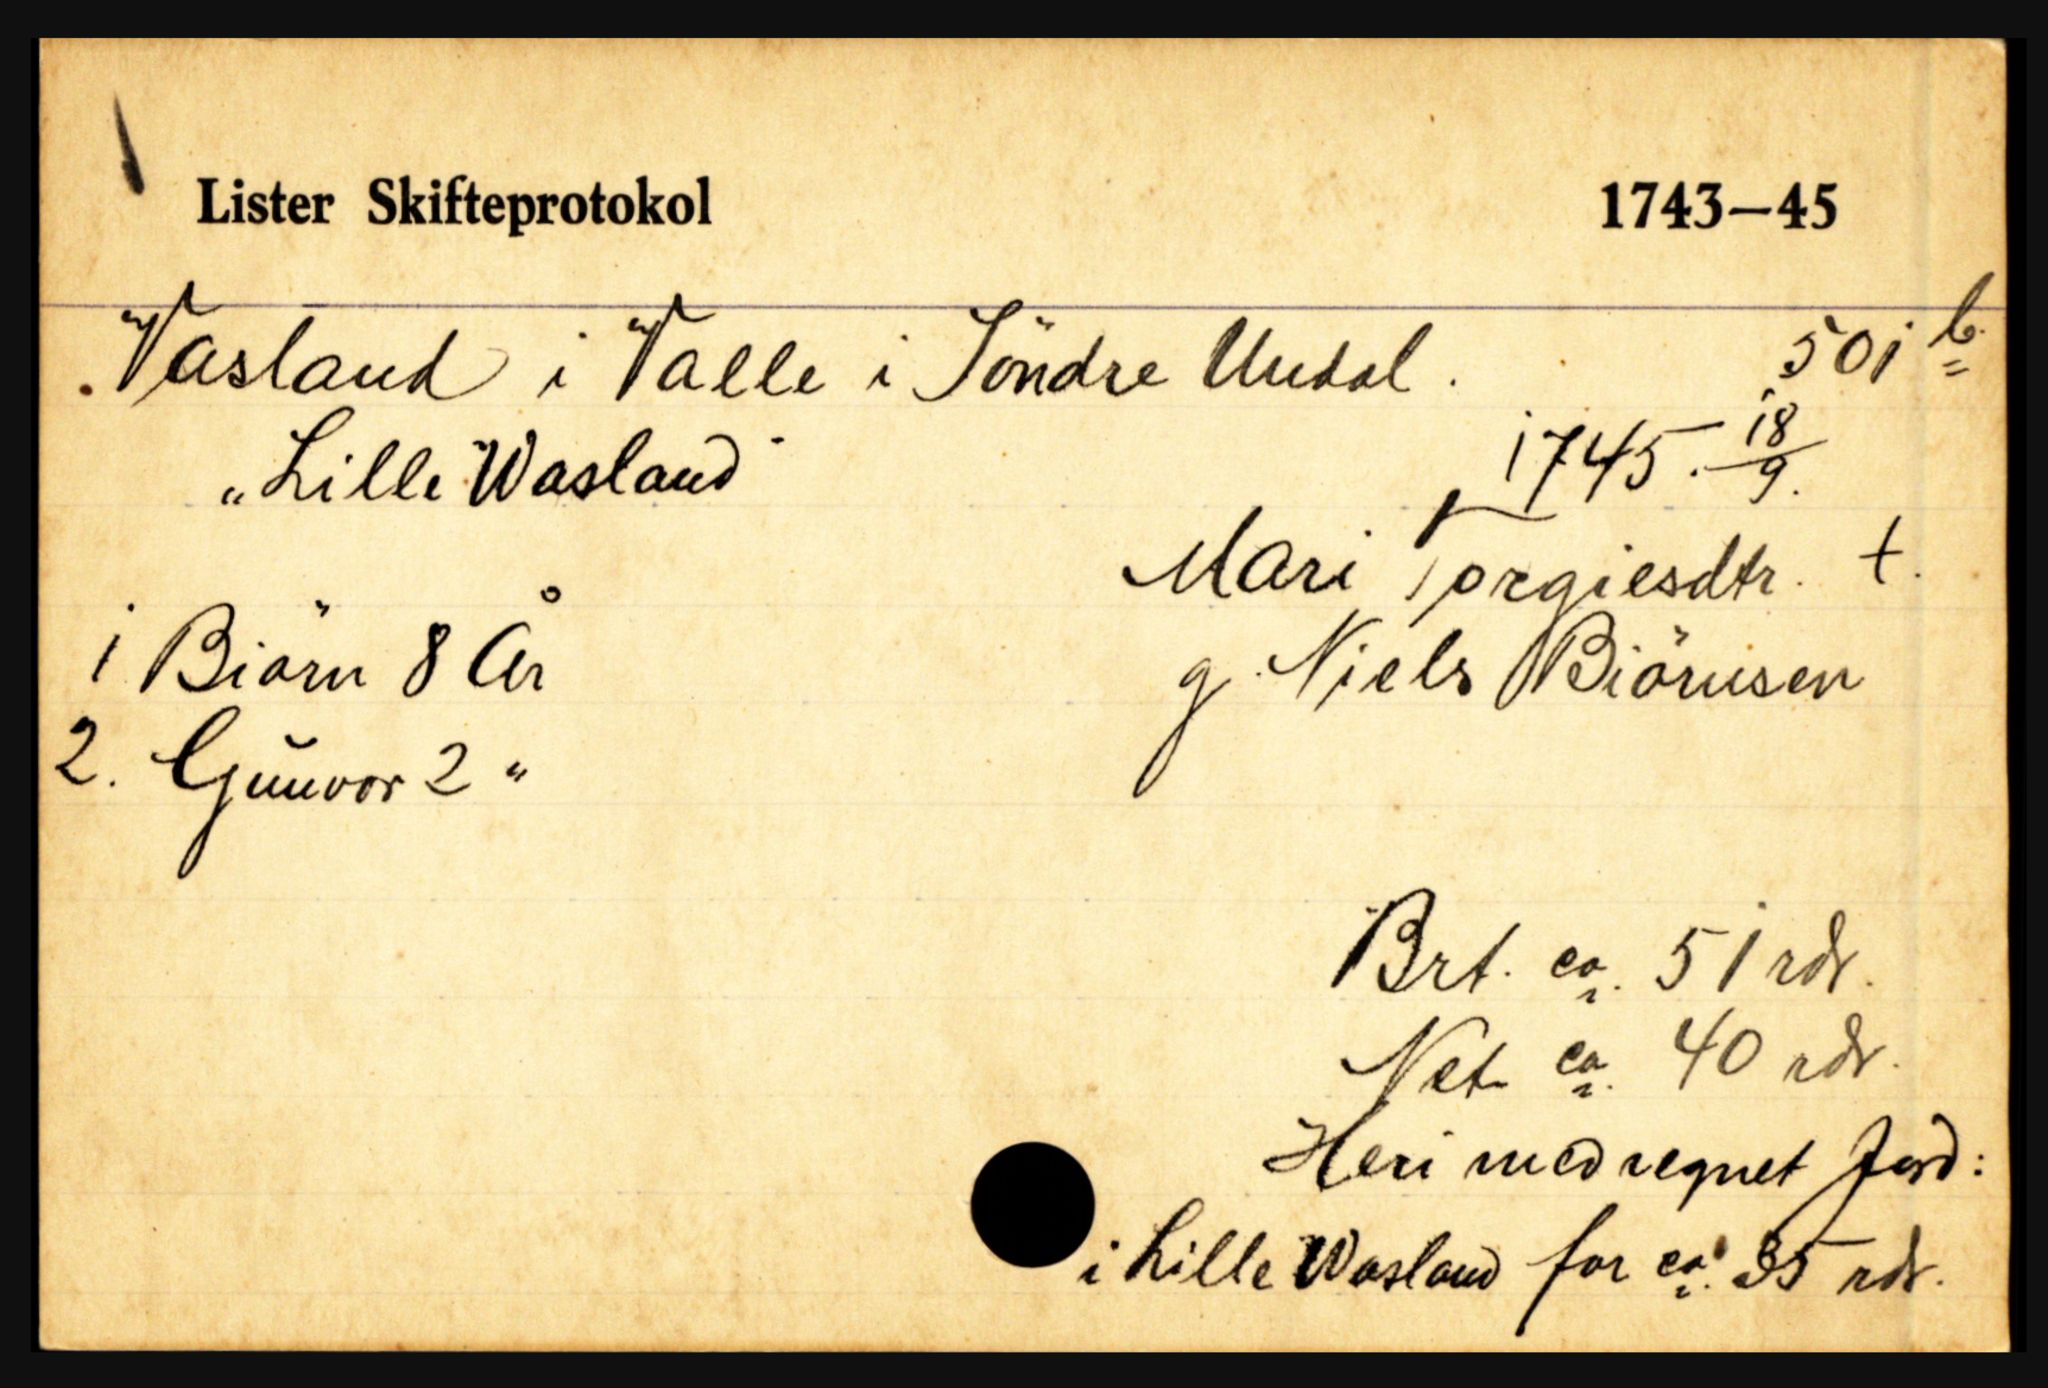 Lister Skifteprotokol 1743—45
Vasland i Valle i Söndre Undal. 501 b.
"Lille Wasland" 1745. 18/9.
Mari Torgiesdtr. †.
1 Biörn 8 År g. Niels Biörnsen
2. Gunvor 2 "
Brt. ca. 51 rdr.
Net ca. 40 rdr.
Heri medregnet Jord:
i Lille Wasland for ca. 35 rdr.